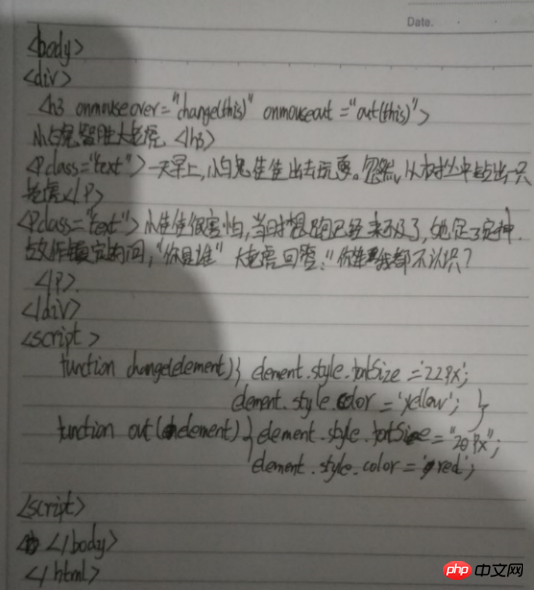 Date.
<body>
<div>
<h3 onmouseover="change(this)" onmouseout="out(this)">
小白兔智胜大老虎 <h3>
<P class="text">一天早上,小白兔生生出去玩耍。忽然,从树丛中出一只
老虎</P>
<P class="text">小生生很害怕,当时想跑已经来不及了,她定了定神,
故作镇定的问,"你是谁"大老虎回答:"你连我都不认识?
</P>
</div>
<script>
function change(element){ element.style.fontSize='22px';
element.style.color='yellow'; }
function out(element){ element.style.fontSize="20px";
element.style.color='red';
<script>
</body>
</html>
php 中文网